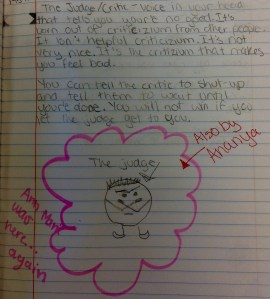 The Judge/Critic - voice in your head
that tells you you're no good. It's
born out of critizizum from other people.
It isn't helpful critizizum. It's not
very nice. It's the critizum that makes
you feel bad.
You can tell the critic to shut-up
and tell them to wait until
you're done. You will not win if you
let the judge get to you.
Also by
Ananiya
The judge
Ann Marie
was
here...
again